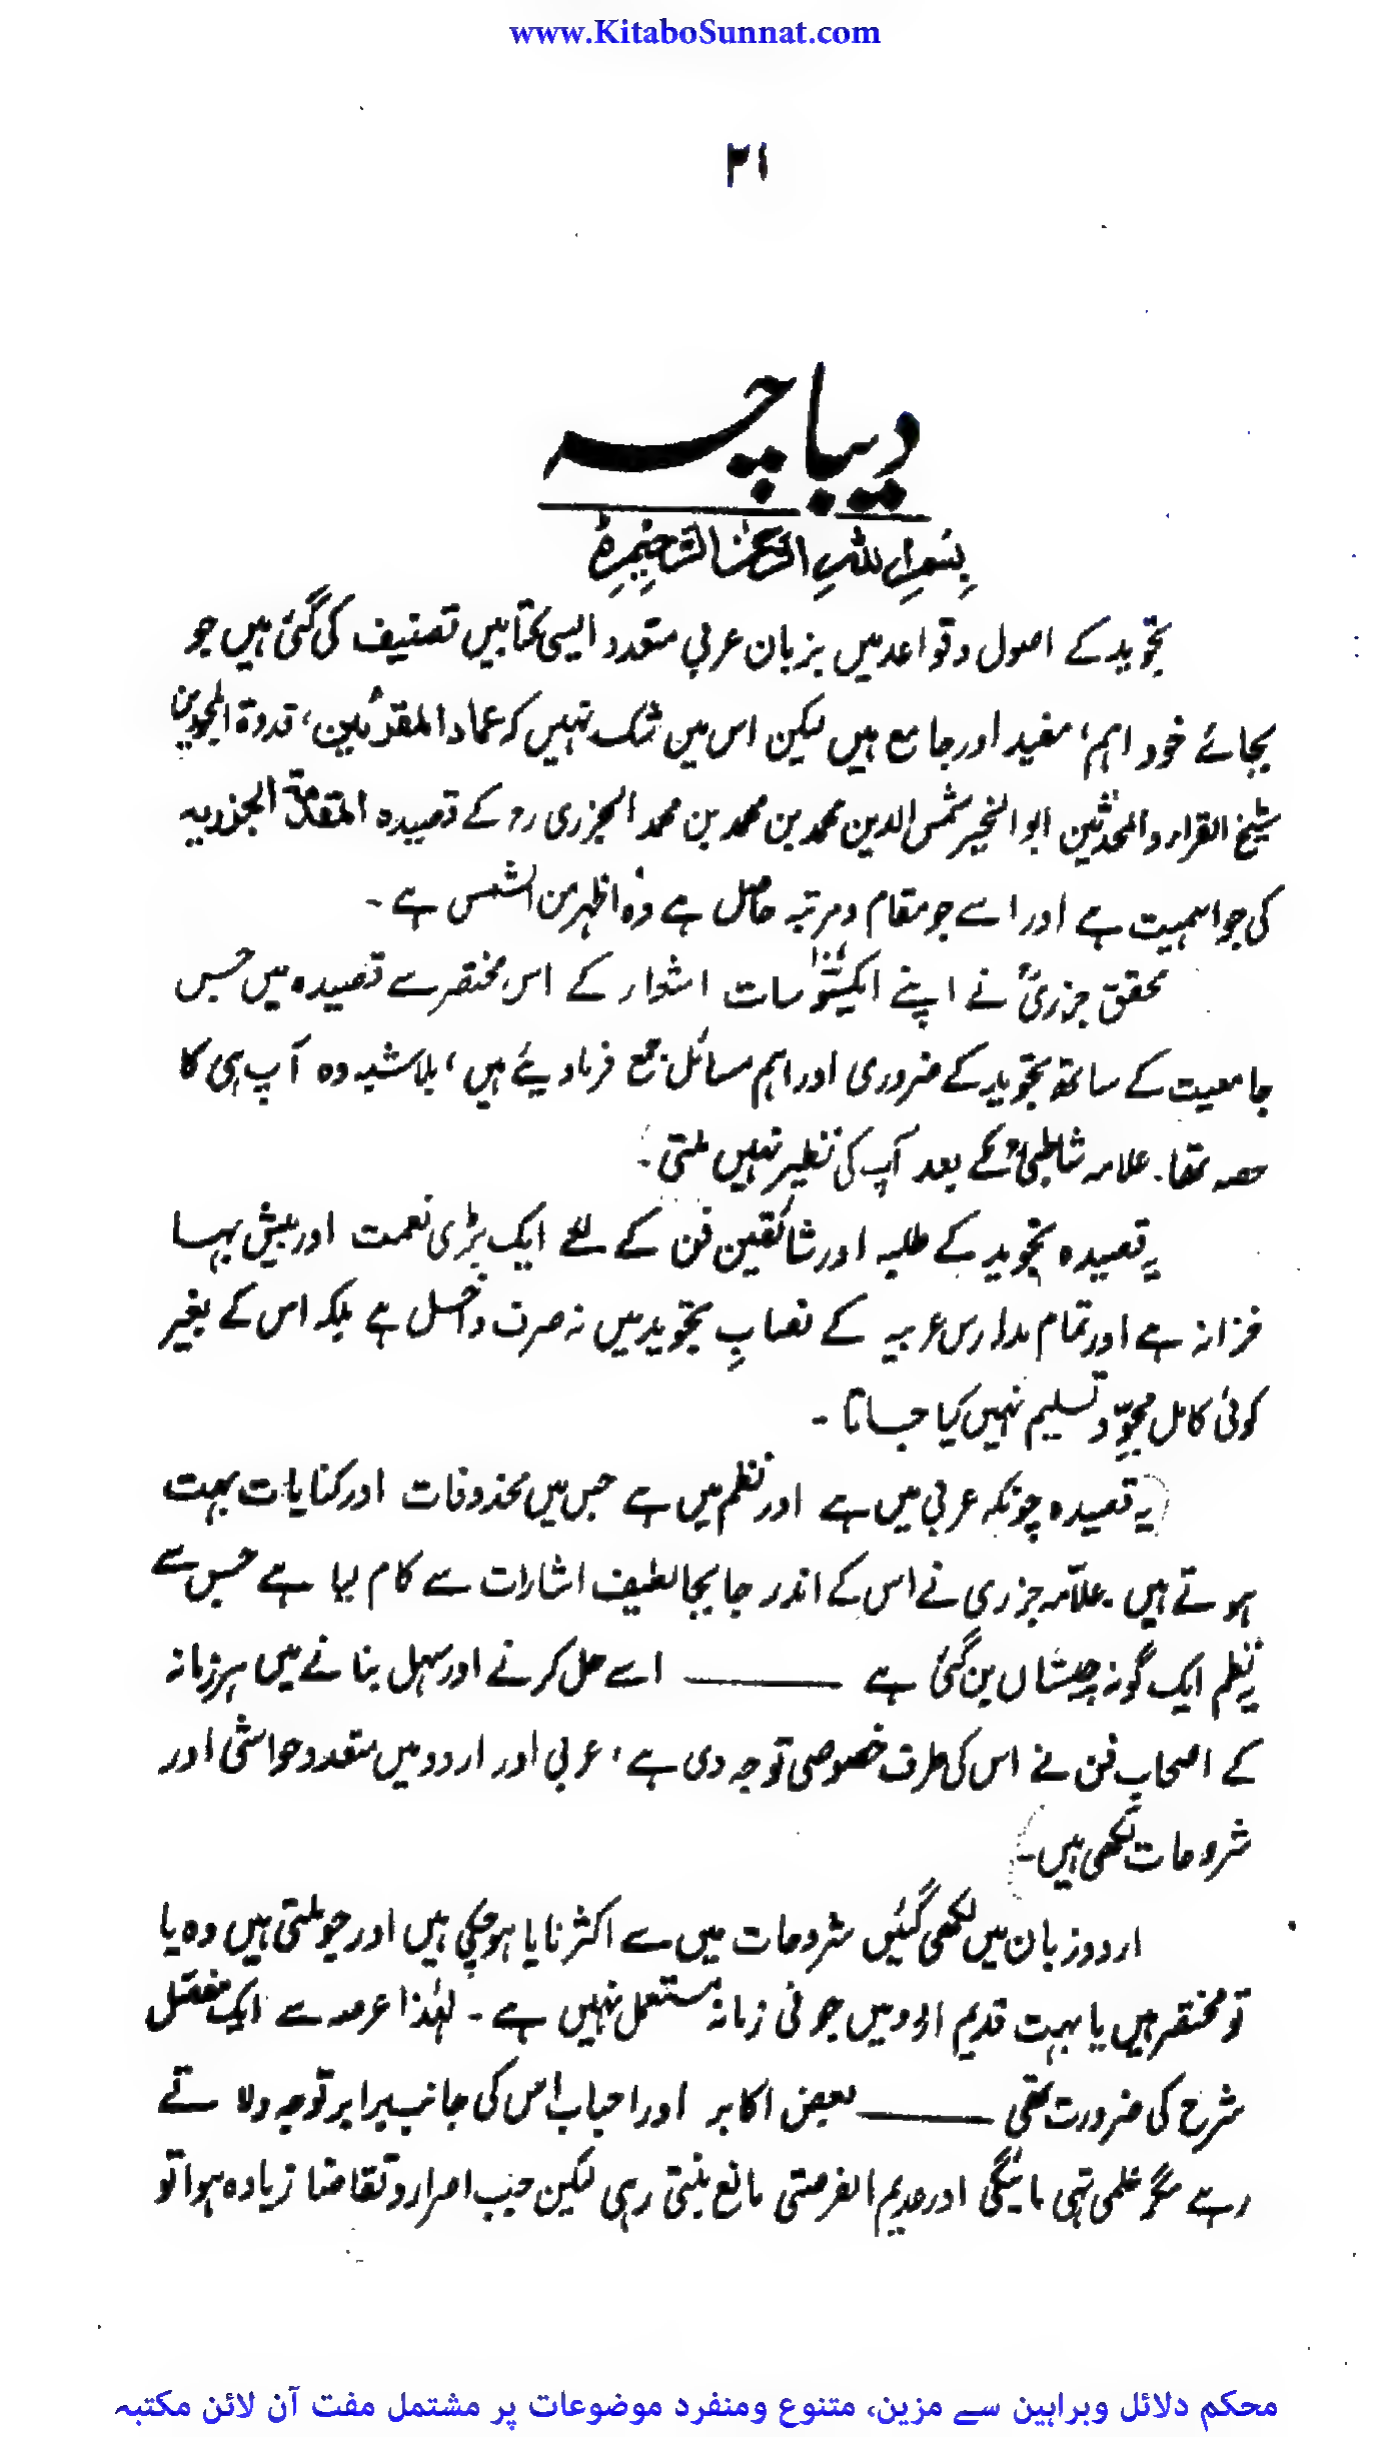 www.KitaboSunnat.com
۲۱
دیباچہ
بِسْمِ اللہِ الرَّحْمٰنِ الرَّحِیْمِ ہ
تجوید کے اصول و قواعد میں بزبان عربی متعدد ایسی کتابیں تصنیف کی گئی ہیں جو
بجائے خود اہم، مفید اور جامع ہیں لیکن اس میں شک نہیں کہ عماد المقرئین، قدوۃ المجودین
شیخ القراء والمحدثین ابوالخیر شمس الدین محمد بن محمد بن محمد الجزری رح کے قصیدہ المقدمۃ الجزریہ
کی جو اہمیت ہے اور اسے جو مقام و مرتبہ حاصل ہے وہ اظہر من الشمس ہے ۔
محقق جزریؒ نے اپنے ایکسو سات اشعار کے اس مختصر سے قصیدہ میں جس
جامعیت کے ساتھ تجوید کے ضروری اور اہم مسائل جمع فرما دیئے ہیں، بلاشبہ وہ آپ ہی کا
حصہ تھا۔ علامہ شاطبیؒ کے بعد آپ کی نظیر نہیں ملتی ۔
یہ قصیدہ تجوید کے طلبہ اور شائقین فن کے لئے ایک بڑی نعمت اور بیش بہا
خزانہ ہے اور تمام مدارس عربیہ کے نصابِ تجوید میں نہ صرف داخل ہے بلکہ اس کے بغیر
کوئی کامل مجوِّد تسلیم نہیں کیا جاتا ۔
یہ قصیدہ چونکہ عربی میں ہے اور نظم میں ہے جس میں محذوفات اور کنایات بہت
ہوتے ہیں ۔ علّامہ جزری نے اس کے اندر جابجا لطیف اشارات سے کام لیا ہے جس سے
یہ نظم ایک گونہ چیستاں بن گئی ہے ——— اسے حل کرنے اور سہل بنانے میں ہر زمانہ
کے اصحابِ فن نے اس کی طرف خصوصی توجہ دی ہے، عربی اور اردو میں متعدد حواشی اور
شروحات لکھی ہیں ۔
اردو زبان میں لکھی گئیں شروحات میں سے اکثر نایا ہو چکی ہیں اور جو ملتی ہیں وہ یا
تو مختصر ہیں یا بہت قدیم اردو میں جو فی زمانہ مستعمل نہیں ہے ۔ لہٰذا عرصہ سے ایک مفصّل
شرح کی ضرورت تھی ——— بعض اکابر اور احباب اس کی جانب برابر توجہ دلاتے
رہے مگر علمی تہی مائیگی اور عدیم الفرصتی مانع بنتی رہی لیکن جب اصرار و تقاضا زیادہ ہوا تو
محکم دلائل وبراہین سے مزین، متنوع ومنفرد موضوعات پر مشتمل مفت آن لائن مکتبہ